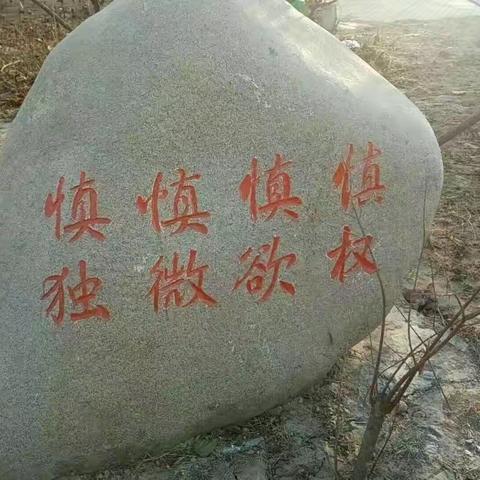 慎权
慎欲
慎微
慎独